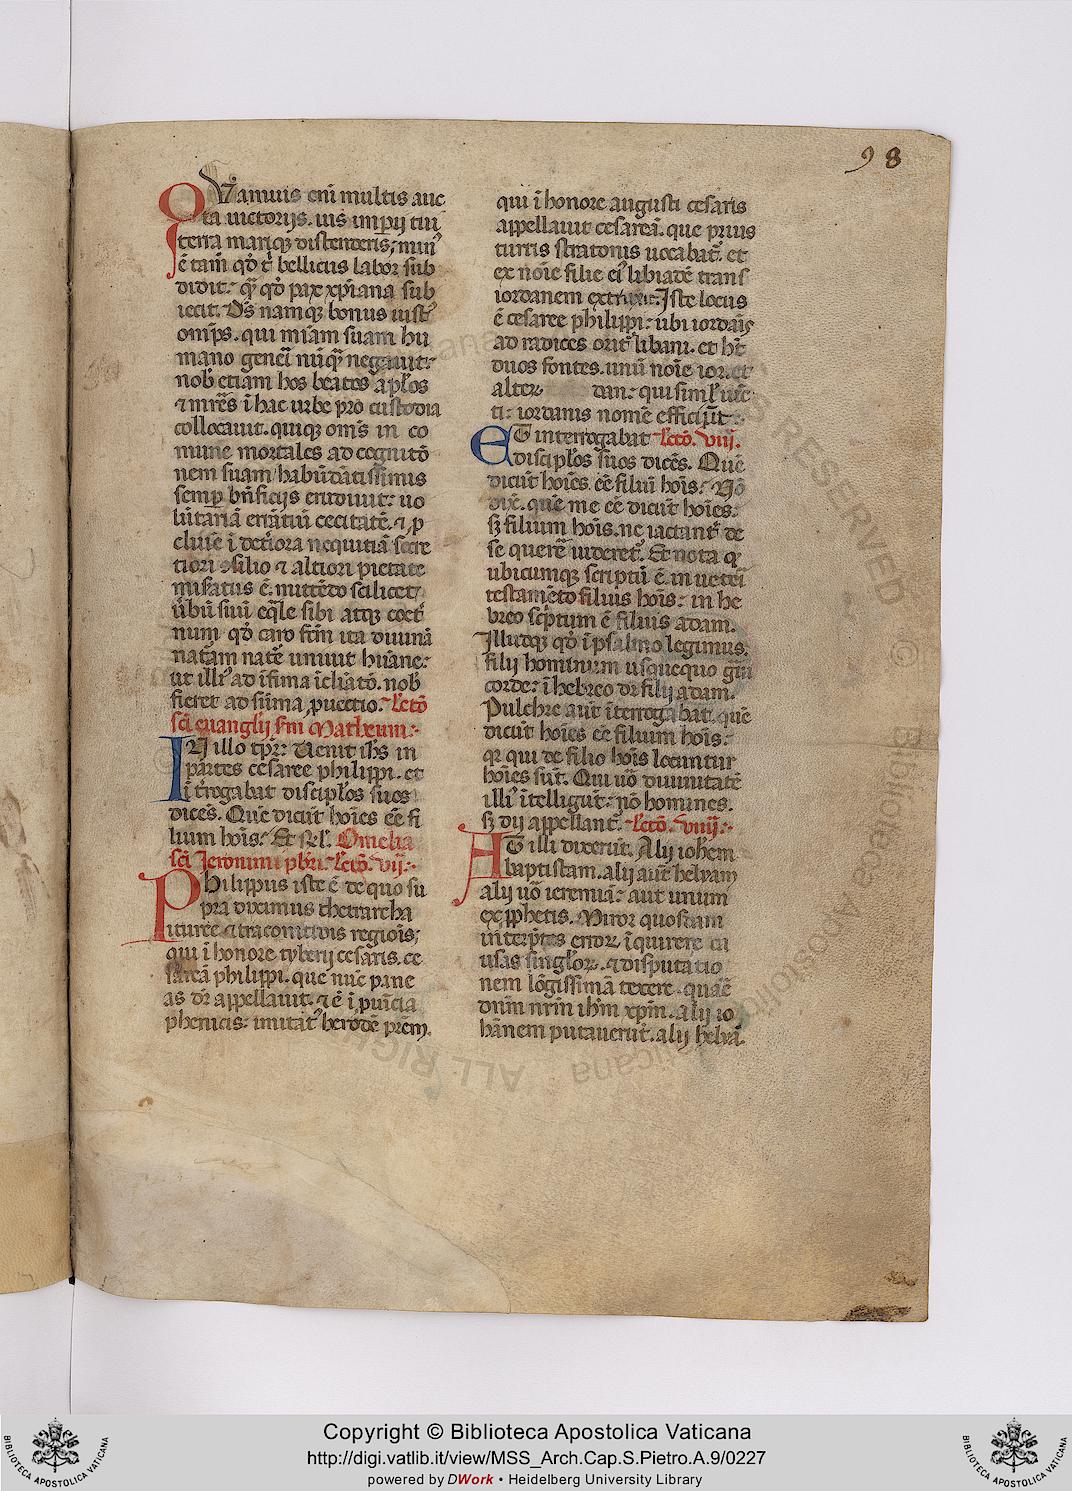 98
Quamuis eni multis auc
ta uictorijs. ius imperij tui
terra mariqz distenderis; min'
ē tam̄ qd' t' bellicus labor sub
didit: qz qd' pax xp̄iana sub
iecit. Ds̄ namqz bonus iust'
om̄ps. qui miām suam hu
mano generi nūqz negauit:
nob' etiam hos beatos ap'los
⁊ mr̄es ī hac urbe pro custodia
collocauit. quiqz om̄s in co
mune mortales ad cognitō
nem suam habūdātissimus
semp bn̄ficijs erudiuit: uo
lūtariā erratui cecitatē. ⁊ p
cliuē ī deteriora nequitiā secre
tiori ꝯsilio ⁊ altiori pietate
misatus ē. mittēdo scilicet
ūbū suū eq̄le sibi atqz coet'
num qd' caro fcm̄ ita diuinā
nat'am nat'e uniuit hūane:
ut illi' ad īfima īcliatō. nob'
fieret ad sūma puectio. Lectō
sci euangl'ij sm Matheum:
IN illo tp̄r: Uenit ih̄s in
partes cesaree philippi. et
īt'rogabat discip'los suos
dices. Quē dicūt hoīes eē fi
lium hoīs: Et rel'. Omelia
sci Jeronimi pbr̄i. Lectō. vij:
Philippus iste ē de quo su
pra diximus thetrarcha
ituree ⁊ traconitidis regiois;
qui ī honore tyberij cesaris. ce
saréā philippi. que nūc pane
as dr̄ appellauit. ⁊ ē ī puīcia
phenicis: imitat' herodē prēm.
qui ī honore augusti cesaris
appellauit cesareā. que prius
turris stratonis uocabat'. et
ex noīe filie ei' libiadē trans
iordanem extruxit: Iste locus
ē cesaree philippi: ubi iordais
ad radices orit' libani. et ht̄
duos fontes. unū noīe ior. et
alter dan: qui simul' iūc
ti: iordanis nomē efficiūt:
ET interrogabat Lectō. viij.
discip'los suos dicēs. Quē
dicūt hoīes. eē filiū hoīs: Nō
dix̄. quē me eē dicūt hoīes:
sz filium hoīs. ne iactant' de
se querē uideret'. Et nota qz
ubicumqz scriptū ē. in ueteri
testamēto filius hoīs: in he
breo sc'ptum ē filius adam.
Illudqz qd' ī psalmo legimus.
filij hominum usqequo graui
corde: ī hebreo dr̄ filij adam.
Pulchre aut īterrogabat. quē
dicūt hoīes eē filium hoīs:
qz qui de filio hoīs locuntur
hoīes sūt. Qui uō diuinitatē
illi' ītelligūt: nō homines.
sz dij appellant'. Lectō. viiij:
AT illi dixerūt. Alij ioh'em
baptistam. alij aut helyam
alij uō ieremiā: aut unum
ex pphetis. Miror quosdam
interp̄tes error. īquirere ca
usas singlor. ⁊ disputatio
nem lōgissimā texere. quarē
dn̄m nr̄m ih̄m xp̄m. alij io
hānem putauerūt. alij helyā.
Copyright © Biblioteca Apostolica Vaticana
http://digi.vatlib.it/view/MSS_Arch.Cap.S.Pietro.A.9/0227
powered by DWork • Heidelberg University Library
BIBLIOTECA APOSTOLICA VATICANA
BIBLIOTECA APOSTOLICA VATICANA